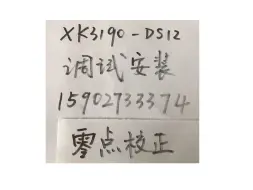 XK3190-DS12
调试安装
15902733374
零点校正